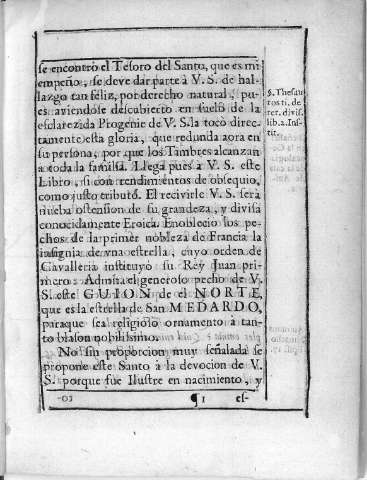 se encontrò el Tesoro del Santo, que es mi
empeño, se deve dar parte à V. S. de hal-
lazgo tan féliz, por derecho natural, pu-
es aviendose descubierto en suelo de la
esclarezida Progenie de V. S. la tocò direc-
tamente esta gloria, que redunda aora en
su persona, por que los Timbres alcanzan
a toda la familia. Llega pues à V. S. este
Libro, si con rendimientos de obsequio,
como justo tributo. El recivirle V. S. serà
nueba ostension de su grandeza, y divisa
conocidamente Eroica. Enoblecio los pe-
chos de la primer nobleza de Francia la
insignia de vna estrella, cuyo orden de
Cavalleria instituyò su Rey Juan pri-
mero: Admita el generoso pecho de V.
S. este GUION de el NORTE,
que es la estrella de San MEDARDO,
paraque sea religioso ornamento à tan-
to blason nobilissimo.
No sin proporcion muy señalada se
propone este Santo à la devocion de V.
S. porque fue Ilustre en nacimiento, y
¶ 1
es-
§. Thesau
ros ti. de
rer. divis.
lib. 2. Ins-
tit.